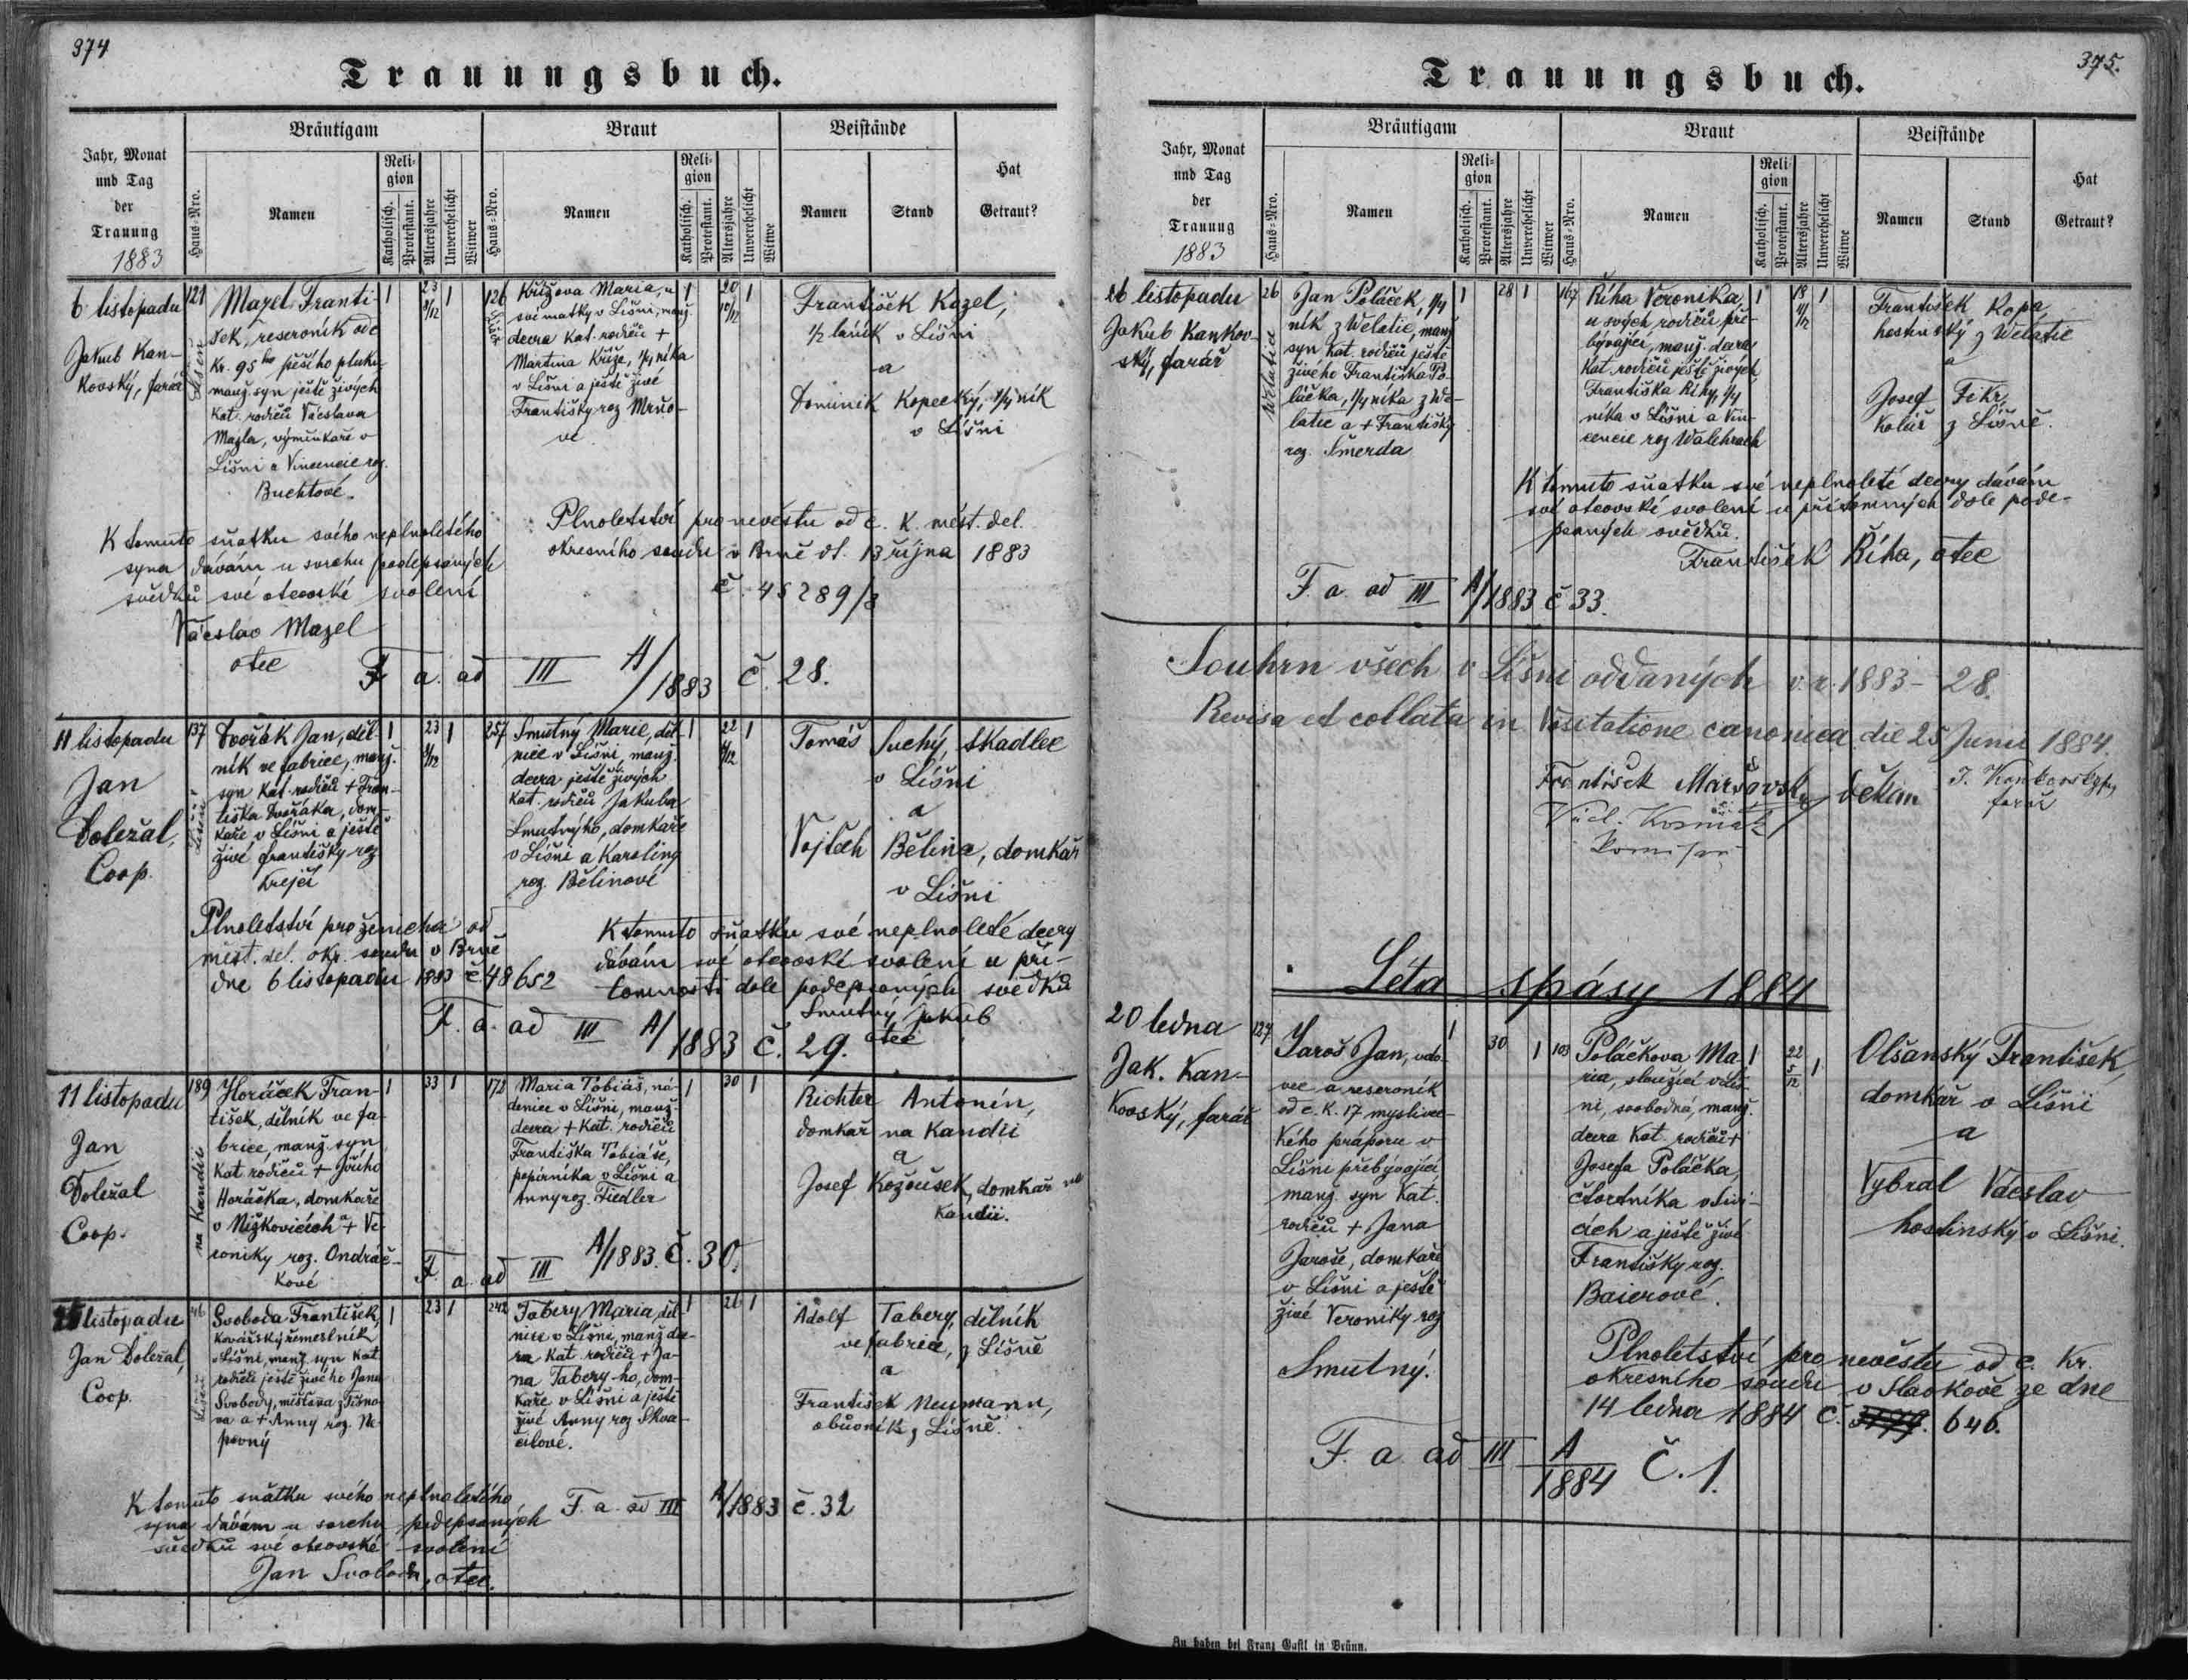 374
Trauungsbuch.
Jahr, Monat
und Tag
der
Trauung
1883
Bräutigam
Haus-Nro.
Namen
Religion
Katholisch.
Protestant.
Altersjahre
Unverehelicht
Witwer
Braut
Haus-Nro.
Namen
Religion
Katholisch.
Protestant.
Altersjahre
Unverehelicht
Witwe
Beistände
Namen
Stand
Hat
Getraut?
6 listopadu
Jakub Kan-
kovský, farář
121
Mazel Franti-
šek, reservník od c
kr. 95ho pěšího pluku
manž. syn ještě živých
kat. rodičů Václava
Mazla, výminkaře v
Líšni a Vincencie roz.
Buchtové.
1
23
1
126
Křížova Maria, u
své matky v Líšni, manž.
dcera kat. rodičů +
Martina Kříže, 1/4 níka
v Líšni a ještě živé
Františky roz Mrňo-
vé
1
20
10/12
1
František Kazel,
1/2 láník v Líšni
a
Dominik Kopecký, 1/4 ník
v Líšni
K tomuto sňatku svého neplnoletého
syna dávám u svrchu podepsaných
svědků své otcovské svolení
Václav Mazel
otec
Plnoletství pro nevěstu od c. k. měst. del.
okresního soudu v Brně dt. 13 října 1883
č. 45289/8
F. a. ad III A/1883 č. 28.
11 listopadu
Jan
Doležal,
Coop.
137
Líšeň
Dvořák Jan, děl-
ník ve fabrice, manž.
syn kat. rodičů + Fran-
tiška Dvořáka, dom-
kaře v Líšni a ještě
živé Františky roz
Krejčí
1
23
1
257
Smutný Marie, děl-
nice v Líšni, manž.
dcera ještě živých
kat. rodičů Jakuba
Smutného, domkaře
v Líšni a Karoliny
roz. Bělinové
1
22
1
Tomáš Suchý, tkadlec
v Líšni
a
Vojtěch Bělina, domkář
v Líšni
Plnoletství pro ženicha od
měst. del. okr. soudu v Brně
dne 6 listopadu 1883 č 48652
K tomuto sňatku své neplnoleté dcery
dávám své otcovské svolení u pří-
tomnosti dole podepsaných svědků
Smutný Jakub
otec
F. a. ad III A/1883 č. 29.
11 listopadu
Jan
Doležal
Coop.
189
na Kandii
Horáček Fran-
tišek, dělník ve fa-
brice, manž. syn
kat rodičů + Jiřího
Horáčka, domkaře
v Nížkovicích a + Ve-
roniky roz. Ondráč-
kové
1
33
1
172
Maria Tobiáš, ná-
denice v Líšni, manž.
dcera + kat. rodičů
Františka Tobiáše,
papírníka v Líšni a
Anny roz. Fiedler
1
30
1
Richter Antonín,
domkař na Kandii
a
Josef Kožoušek, domkař na
Kandii.
F. a. ad III A/1883. č. 30.
listopadu
Jan Doležal,
Coop.
46
Líšeň
Svoboda František,
kovářský řemeslník
v Líšni, manž. syn kat
rodičů ještě živého Jana
Svobody, měšťana z Tišno-
va a + Anny roz. Ne-
pevný
1
23
1
242
Tabery Maria, děl-
nice v Líšni, manž dce-
ra kat. rodičů + Ja-
na Tabery-ho, dom-
kaře v Líšni a ještě
živé Anny roz Skva-
čilové.
1
26
1
Adolf Tabery, dělník
ve fabrice, z Líšně
a
František Neumann,
obuvník z Líšně.
K tomuto sňatku svého neplnoletého
syna dávám u svrchu podepsaných
svědků své otcovské svolení
Jan Svoboda, otec.
F. a. ad III A/1883 č. 32
375.
Trauungsbuch.
Jahr, Monat
und Tag
der
Trauung
1883
Bräutigam
Haus-Nro.
Namen
Religion
Katholisch.
Protestant.
Altersjahre
Unverehelicht
Witwer
Braut
Haus-Nro.
Namen
Religion
Katholisch.
Protestant.
Altersjahre
Unverehelicht
Witwe
Beistände
Namen
Stand
Hat
Getraut?
26 listopadu
Jakub Kankov-
ský, farář
26
Welatice
Jan Poláček, 1/4
ník z Welatic, manž
syn kat. rodičů ještě
živého Františka Po-
láčka, 1/4 níka z We-
latic a + Františky
roz. Šmerda
1
28
1
167
Říha Veronika,
u svých rodičů pře-
bývající, manž. dcera
kat. rodičů ještě živých
Františka Říhy, 1/4
níka v Líšni a Vin-
cencie roz Walehrach
1
18
11/12
1
František Kopa,
hostinský z Welatic
a
Josef Fikr,
kolář z Líšně.
K tomuto sňatku své neplnoleté dcery dávám
své otcovské svolení u přítomných dole pode-
psaných svědků.
František Říha, otec
F. a. ad III A/1883 č 33.
Souhrn všech v Líšni oddaných v. r. 1883 - 28.
Revisa et collata in Visitatione canonica die 25 Junii 1884.
František Maršovský děkan
J. Kankovský
farář
Václ. Kosmák
Komisař
Léta spásy 1884
20 ledna
Jak. Kan-
kovský, farář
127
Jaroš Jan, vdo-
vec a reservník
od c. k. 17 myslivec-
kého práporu v
Líšni přebývající
manž. syn kat.
rodičů + Jana
Jaroše, domkaře
v Líšni a ještě
živé Veroniky roz
Smutný.
1
30
1
103
Poláčkova Ma-
ria, sloužící v Líš-
ni, svobodná, manž.
dcera kat. rodičů +
Josefa Poláčka,
čtvrtníka v Sivi-
cích a ještě živé
Františky roz.
Baierové.
1
22
5/12
1
Olšanský František,
domkař v Líšni
a
Vybral Václav
hostinský v Líšni.
Plnoletství pro nevěstu od c. kr.
okresního soudu v Slavkově ze dne
14 ledna 1884 č. 646.
F. a ad III A/1884 č. 1.
Zu haben bei Franz Gastl in Brünn.